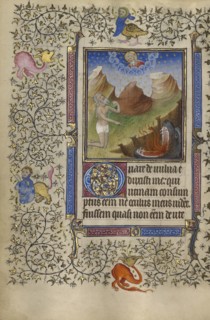 Quare de uulua e
duxisti me: qui
utinam consum
ptus eem ne oculus me uider
fuissem quasi non eem de ute